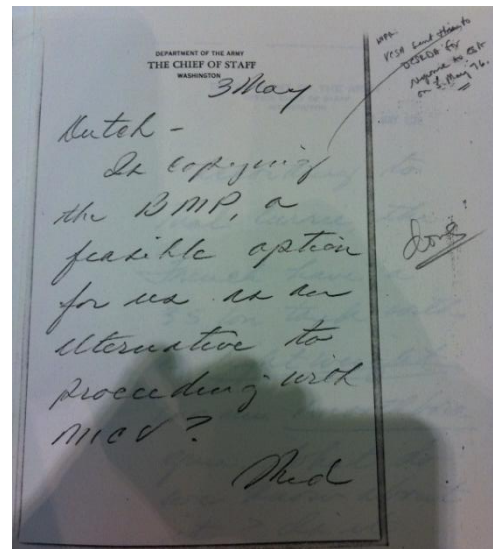 DEPARTMENT OF THE ARMY
THE CHIEF OF STAFF
WASHINGTON
3 May
Dutch -
Is copying
the BMP, a
feasible option
for us as an
alternative to
proceeding with
MICV?
VCSA sent this to
DCSRDA for
response to CSA
on 3 May 76.
done